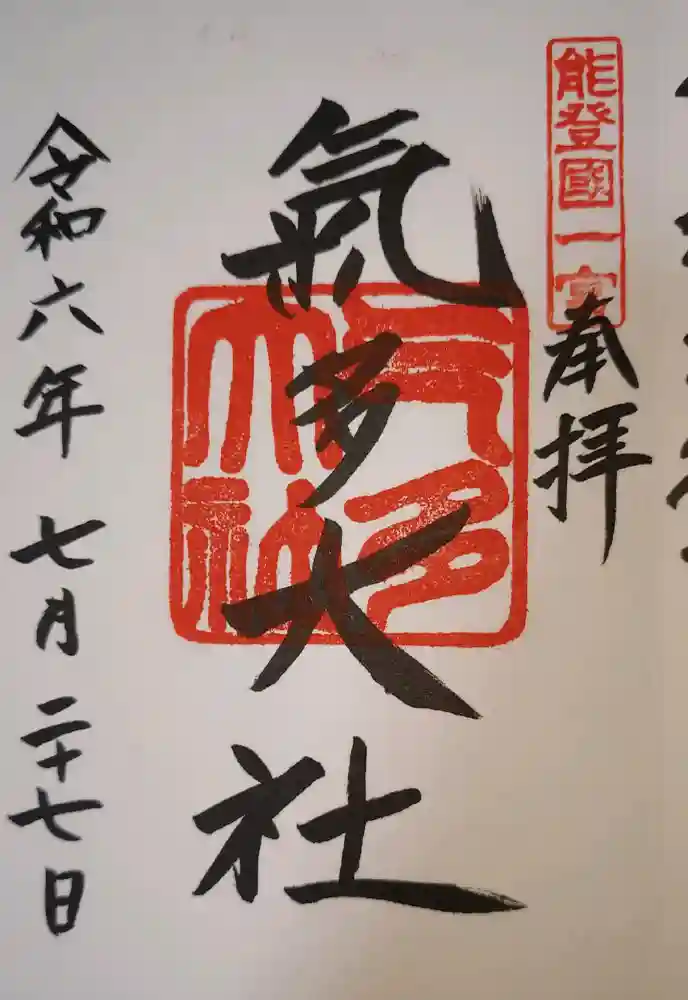 能登國一宮
奉拝
氣多大社
气多大社
令和六年七月二十七日